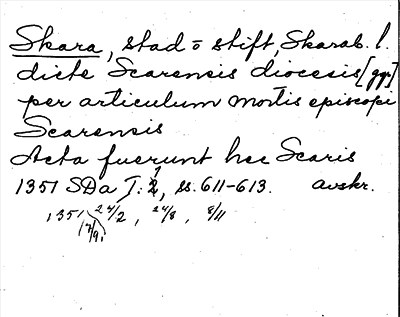 Skara, stad o stift, Skarab. l.
dicte Scarensis diocesis [ggr]
per articulum mortis episcopi
Scarensis
Acta fuerunt hec Scaris
1351 SDa I:2, ss. 611-613. avskr.
1351 24/2, 24/8, 8/11
(7/9)